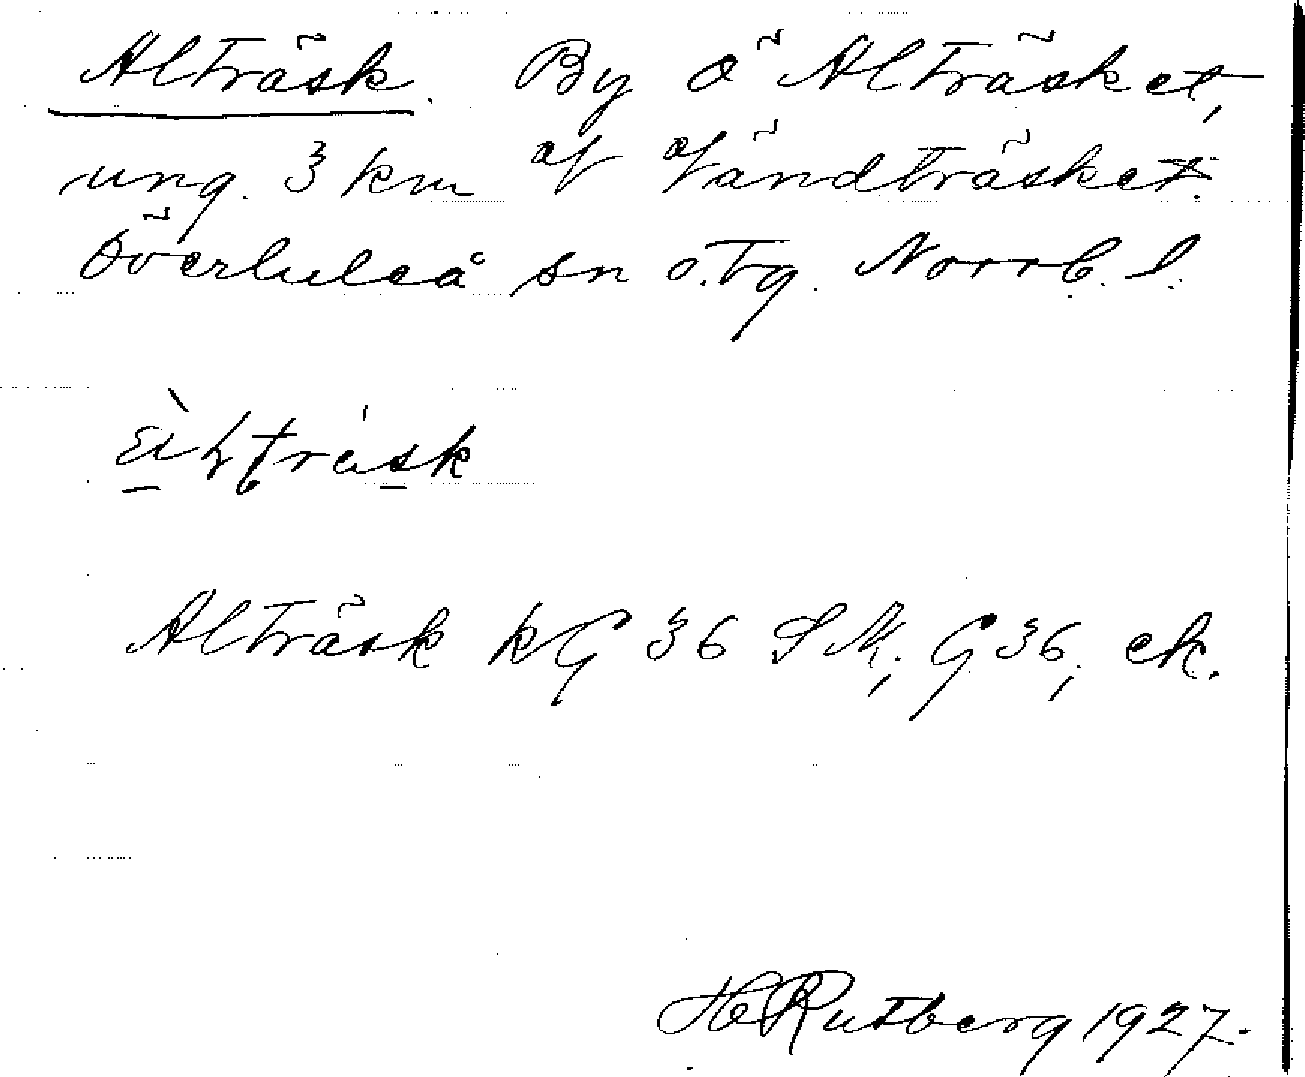 Alträsk. By ö Alträsket,
ung. 3 km af Vändträsket.
Överluleå sn o. tg. Norrb. l.
Alträsk kG 36 SM; G 36, ek.
H Rutberg 1927.